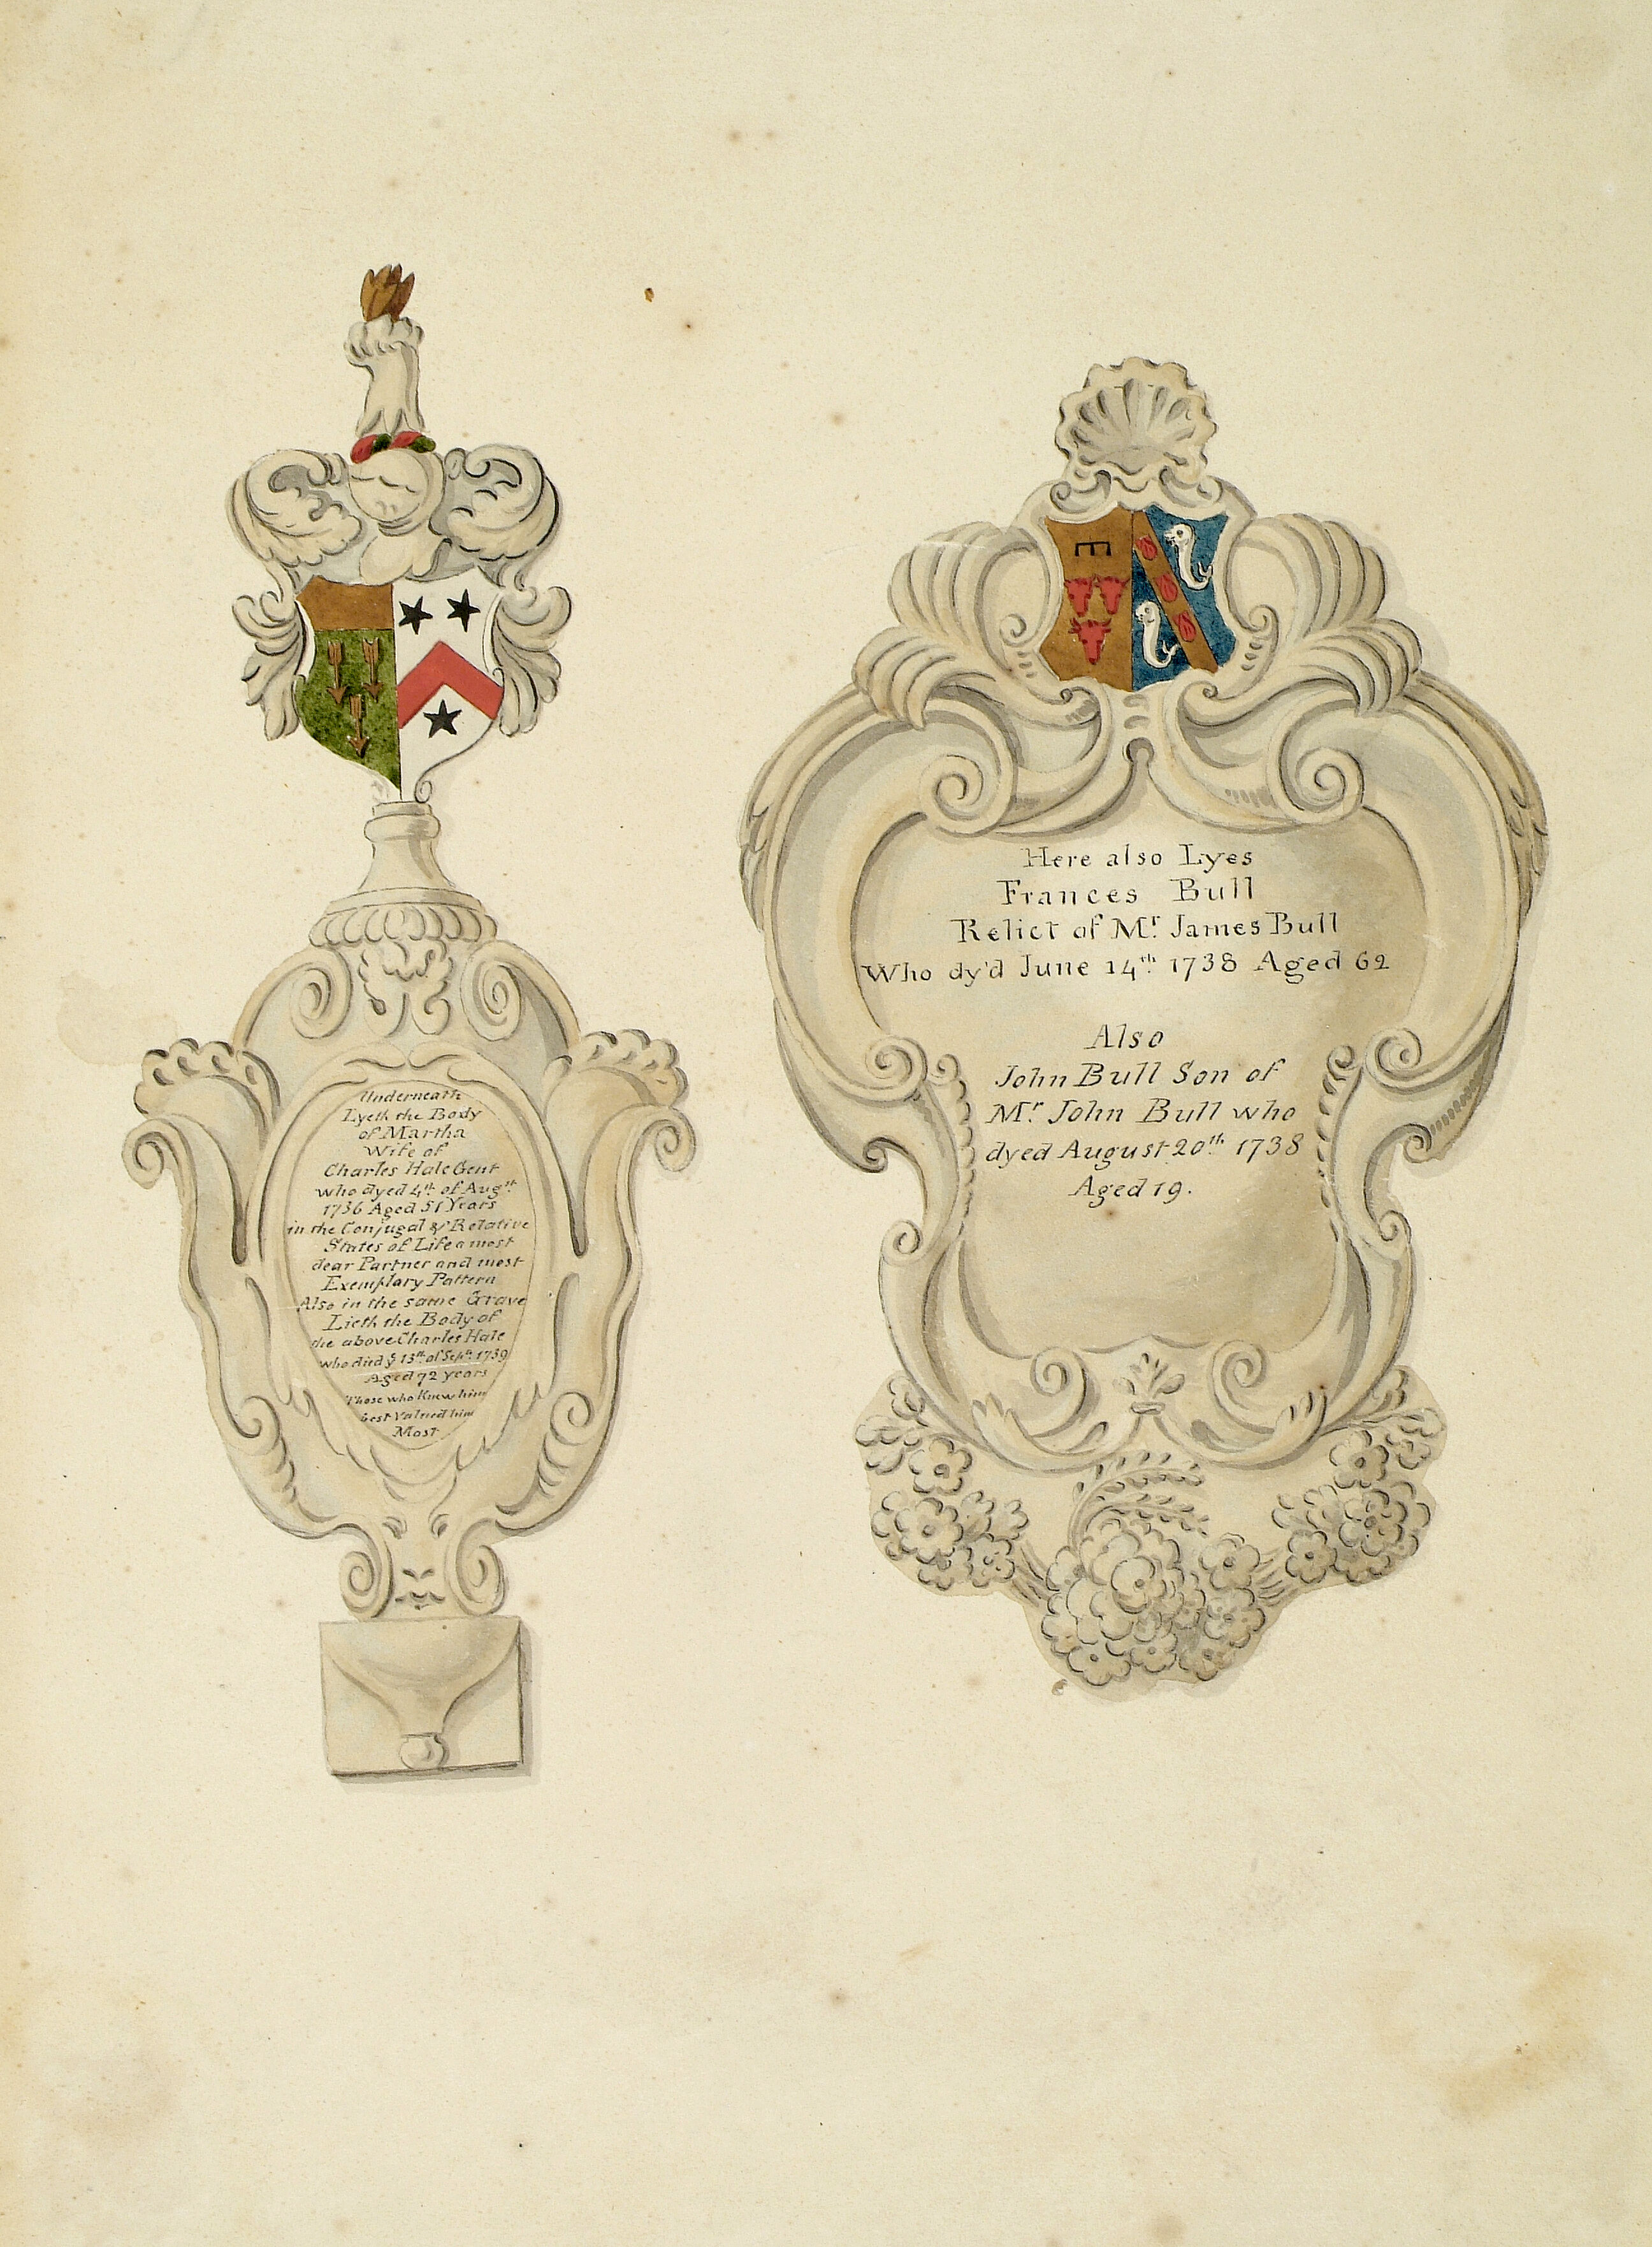 Underneath
Lyeth the Body
of Martha
Wife of
Charles Hale Gent
who dyed 4th of Augst
1736 Aged 51 Years
in the Conjugal & Relative
States of Life a most
dear Partner and most
Exemplary Pattern
Also in the same Grave
Lieth the Body of
the above Charles Hale
who died ye 13th of Septr. 1739
Aged 72 years
Those who Knew him
best Valued him
Most
Here also Lyes
Frances Bull
Relict of Mr. James Bull
Who dy'd June 14th 1738 Aged 62
Also
John Bull Son of
Mr John Bull who
dyed August 20th 1738
Aged 19.